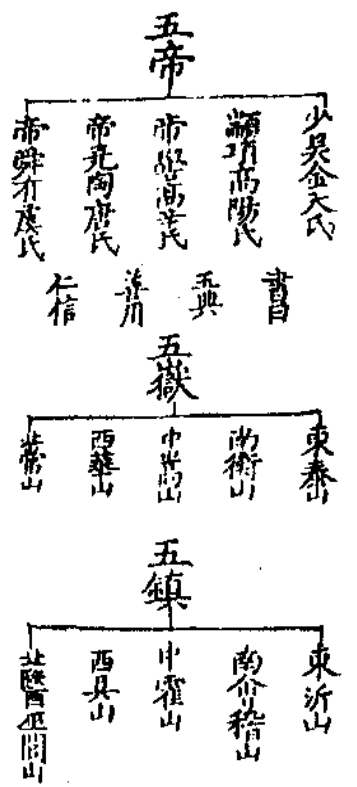 五帝
少昊金天氏
顓頊高陽氏
帝嚳高辛氏
帝堯陶唐氏
帝舜有虞氏
書曰
五典
仁信
五嶽
東泰山
南衡山
中嵩山
西華山
北常山
五鎮
東沂山
南会稽山
中霍山
西具山
北醫巫閭山